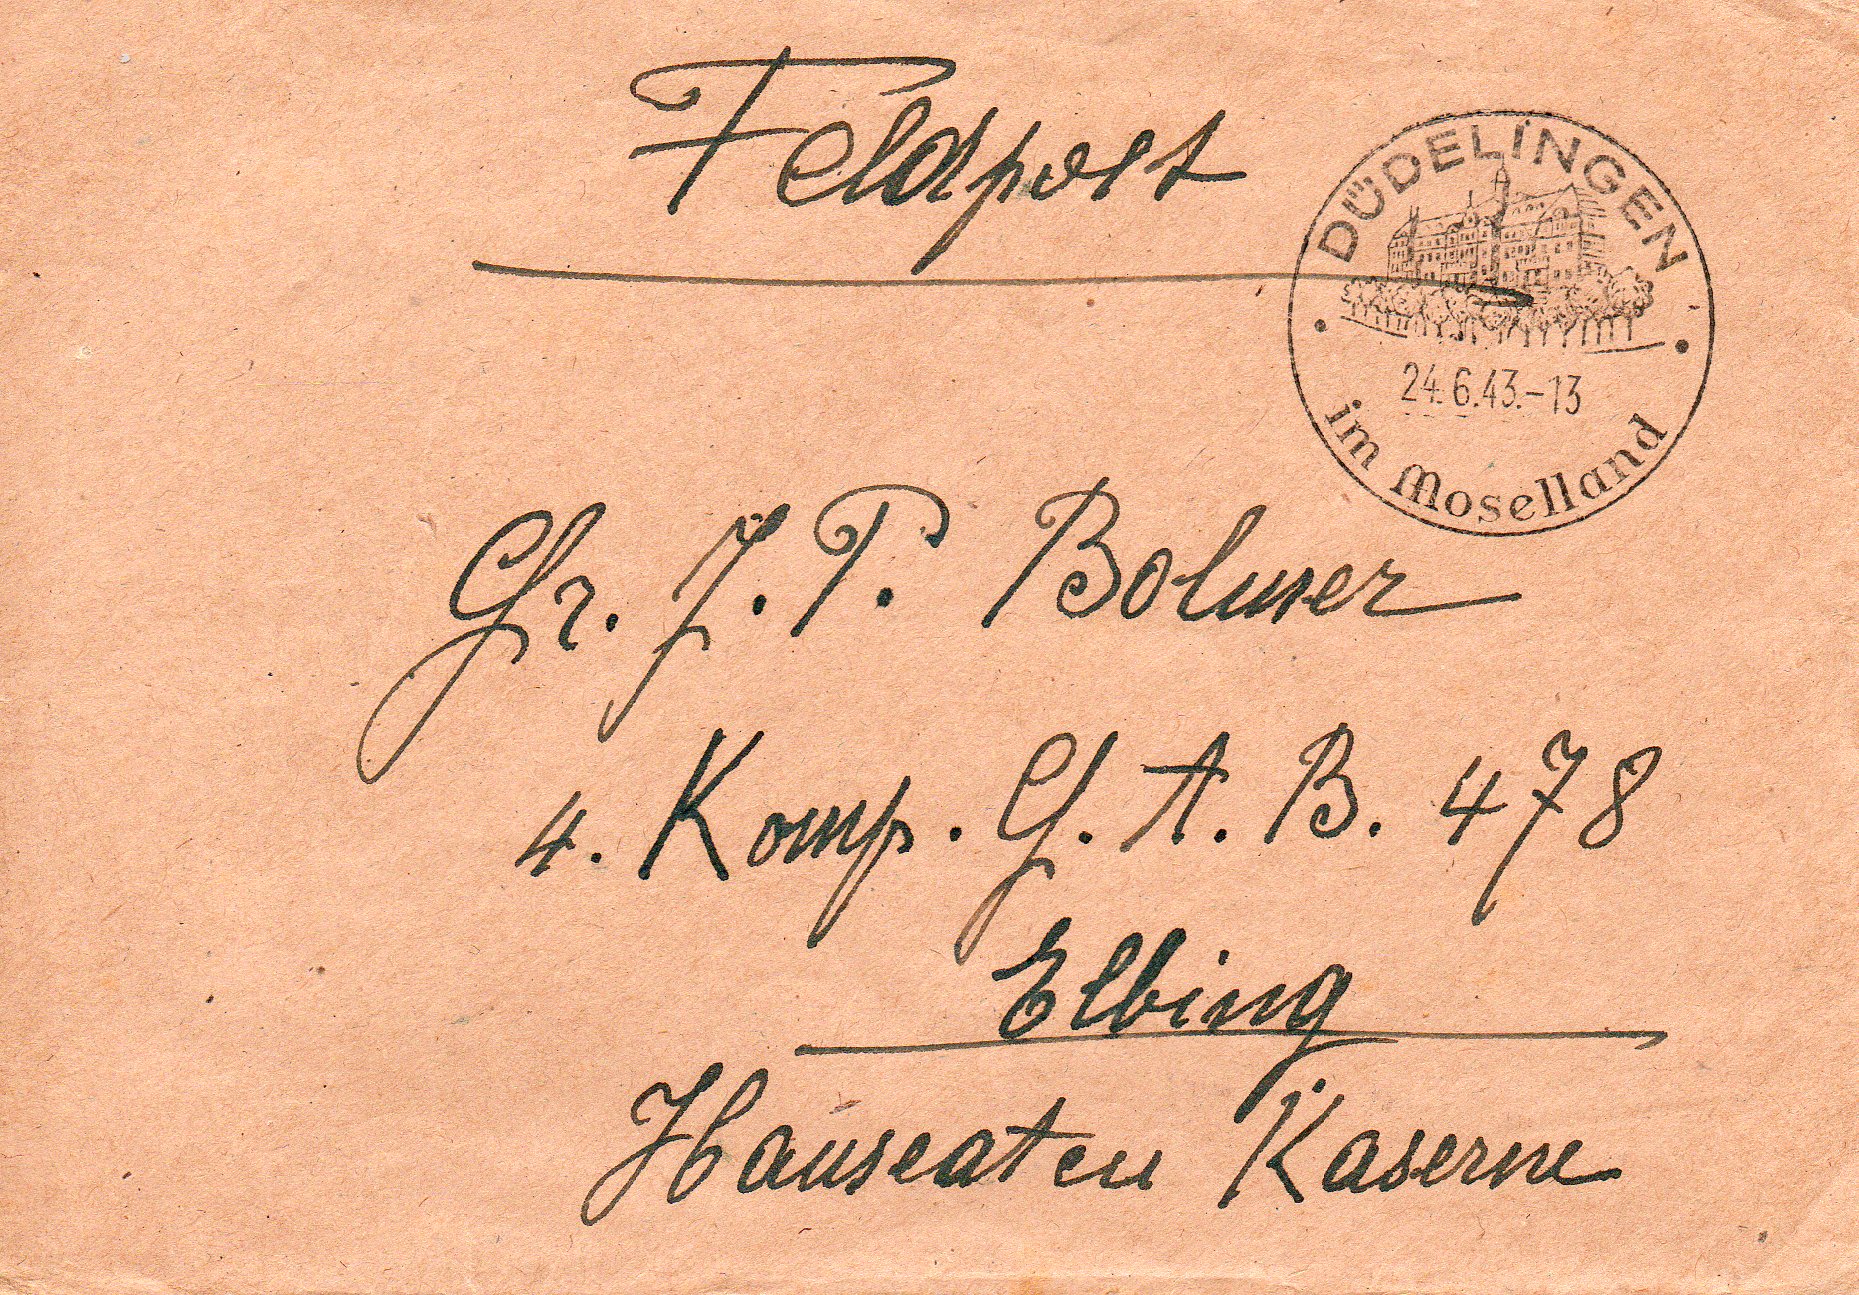 Feldpost
DÜDELINGEN
24.6.43.-13
im Moselland
Gr. J. P. Bolmer
4. Komp. G. A. B. 478
Elbing
Hanseaten Kaserne